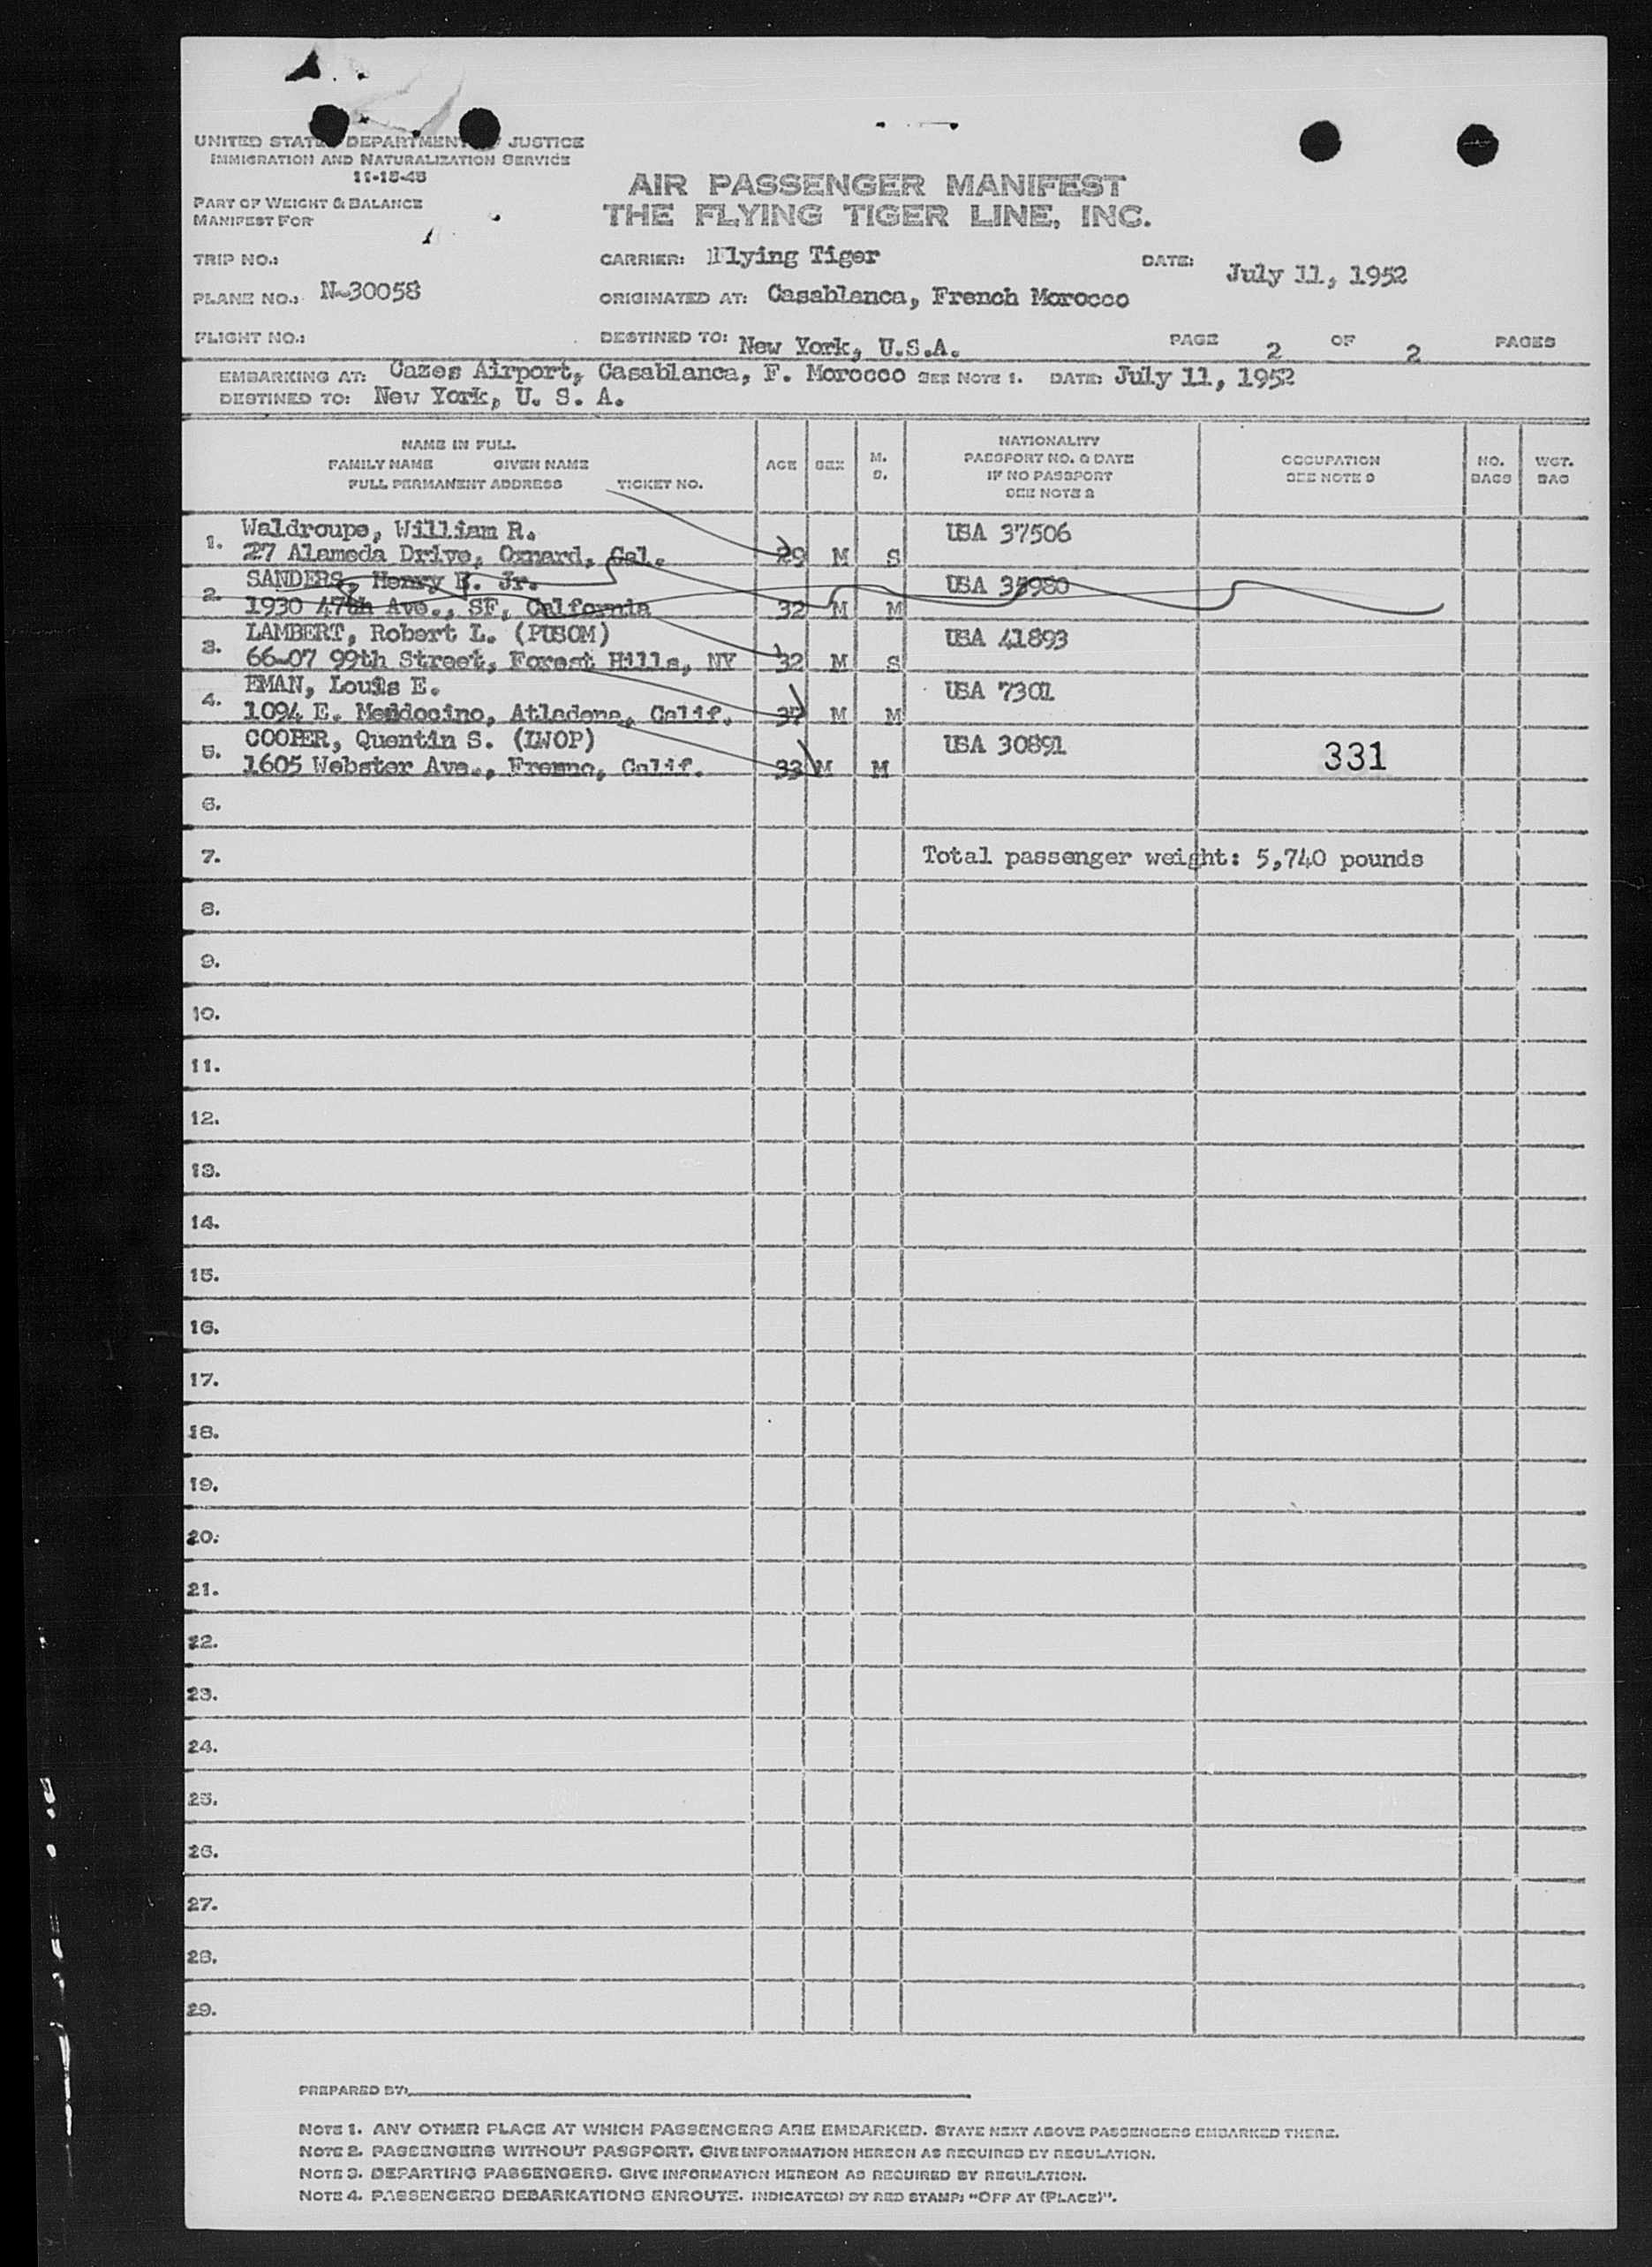 UNITED STATES DEPARTMENT JUSTICE
IMMIGRATION AND NATURALIZATION SERVICE
11-18-48
PART OF WEIGHT & BALANCE
MANIFEST FOR
AIR PASSENGER MANIFEST
THE FLYING TIGER LINE, INC.
TRIP NO.: CARRIER: Flying Tiger DATE: July 11, 1952
PLANE NO.: N-30058 ORIGINATED AT: Casablanca, French Morocco
FLIGHT NO.: DESTINED TO: New York, U.S.A. PAGE 2 OF 2 PAGES
EMBARKING AT: Cazes Airport, Casablanca, F. Morocco SEE NOTE 1. DATE: July 11, 1952
DESTINED TO: New York, U. S. A.
NAME IN FULL
FAMILY NAME GIVEN NAME
FULL PERMANENT ADDRESS TICKET NO.
AGE SEX M. S.
NATIONALITY
PASSPORT NO. & DATE
IF NO PASSPORT
SEE NOTE 2
OCCUPATION
SEE NOTE 3
NO. BAGS
WGT. BAG
1. Waldroupe, William R. USA 37506
27 Alameda Drive, Oxnard, Cal. 29 M S
2. SANDERS, Henry Jr. USA 35980
1930 47th Ave., SF, California 32 M M
3. LAMBERT, Robert L. (PUSOM) USA 41893
66-07 99th Street, Forest Hills, NY 32 M S
4. EMAN, Louis E. USA 7301
1094 E. Mendocino, Atladena, Calif. 37 M M
5. COOPER, Quentin S. (LWOP) USA 30891 331
1605 Webster Ave., Fresno, Calif. 33 M M
6.
7. Total passenger weight: 5,740 pounds
8.
9.
10.
11.
12.
13.
14.
15.
16.
17.
18.
19.
20.
21.
22.
23.
24.
25.
26.
27.
28.
29.
PREPARED BY:
NOTE 1. ANY OTHER PLACE AT WHICH PASSENGERS ARE EMBARKED. STATE NEXT ABOVE PASSENGERS EMBARKED THERE.
NOTE 2. PASSENGERS WITHOUT PASSPORT. GIVE INFORMATION HEREON AS REQUIRED BY REGULATION.
NOTE 3. DEPARTING PASSENGERS. GIVE INFORMATION HEREON AS REQUIRED BY REGULATION.
NOTE 4. PASSENGERS DEBARKATIONS ENROUTE. INDICATE(D) BY RED STAMP: "OFF AT (PLACE)".